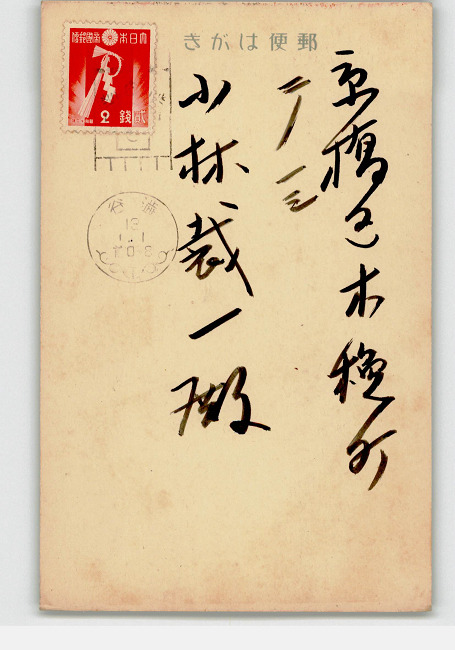 郵便はがき
京橋区木挽町
二ノ一三
小林 一様
大日本帝國郵便
2 錢 貳
谷
13
1.1
0-8